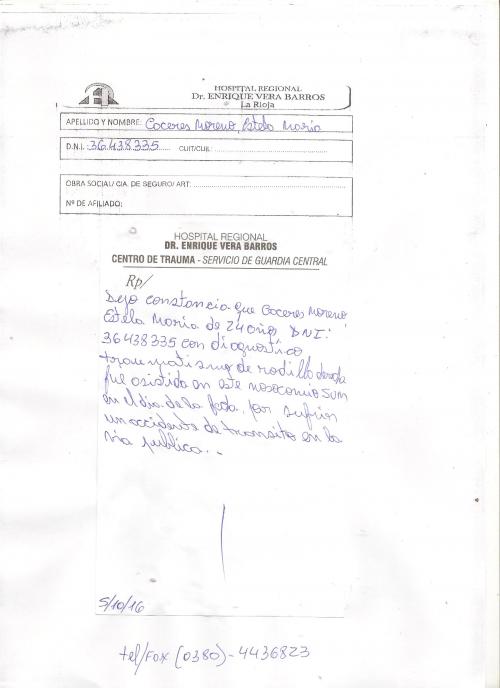 HOSPITAL REGIONAL
Dr. ENRIQUE VERA BARROS
La Rioja
APELLIDO Y NOMBRE: Coceres Moreno, Estela Maria
D.N.I. 36.438335 CUIT/CUIL:
OBRA SOCIAL/ CIA. DE SEGURO/ ART:
Nº DE AFILIADO:
HOSPITAL REGIONAL
DR. ENRIQUE VERA BARROS
CENTRO DE TRAUMA - SERVICIO DE GUARDIA CENTRAL
Rp/
Dejo constancia que Coceres Moreno
Estela Maria de 24 años DNI:
36438335 con diagnostico
traumatismo de rodilla derecha
fue asistida en este nosocomio
en el dia de la fecha por sufrir
un accidente de transito en la
via publica...
5/10/16
tel/Fax (0380)-4436823